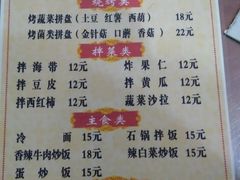 烧烤类
烤蔬菜拼盘（土豆 红薯 西葫） 18元
烤菌类拼盘（金针菇 口蘑 香菇） 22元
拌菜类
拌海带 12元 炸果仁 12元
拌豆皮 12元 拌黄瓜 12元
拌西红柿 12元 蔬菜沙拉 12元
主食类
冷面 15元 石锅拌饭 15元
香辣牛肉炒饭 18元 辣白菜炒饭 15元
蛋炒饭 15元